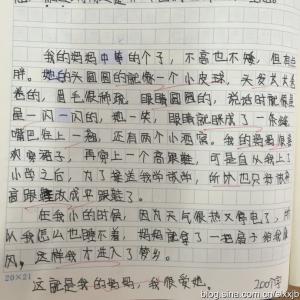 我的妈妈中等的个子，不高也不矮，但有点
胖。她的头圆圆的就像一个小皮球，天发大大卷
卷的，眉毛很稀疏，眼睛圆圆的，说话时就很
是一闪一闪的，她一笑，眼睛就眯成了一条缝
嘴巴往上一翘，还有两个小酒窝。我的妈妈很喜
欢穿裙子，再穿上一个高跟鞋，可是自从我上了
小学之后，为了接送我学，所以也只好把
高跟鞋改成平跟鞋了。
在我小的时候，因为天气很热又停电了，所
以我怎么也睡不着，妈妈就拿了一把扇子给我扇
风，这样我才进入了梦乡。
20×21
这就是我的妈妈，我很爱她。
200字
blog.sina.com.cn/lxxjb